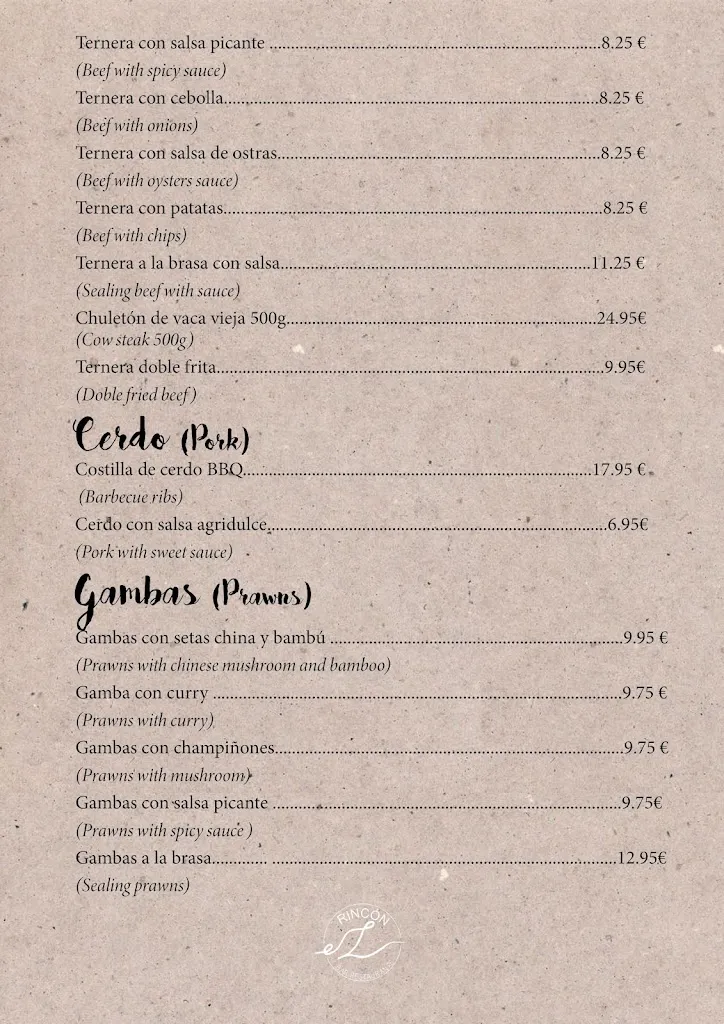 Ternera con salsa picante ........................................................................8.25 €
(Beef with spicy sauce)
Ternera con cebolla..................................................................................8.25 €
(Beef with onions)
Ternera con salsa de ostras.......................................................................8.25 €
(Beef with oysters sauce)
Ternera con patatas...................................................................................8.25 €
(Beef with chips)
Ternera a la brasa con salsa....................................................................11.25 €
(Sealing beef with sauce)
Chuletón de vaca vieja 500g...................................................................24.95€
(Cow steak 500g)
Ternera doble frita.....................................................................................9.95€
(Doble fried beef)
Cerdo (Pork)
Costilla de cerdo BBQ............................................................................17.95 €
(Barbecue ribs)
Cerdo con salsa agridulce..........................................................................6.95€
(Pork with sweet sauce)
Gambas (Prawns)
Gambas con setas china y bambú ................................................................9.95 €
(Prawns with chinese mushroom and bamboo)
Gamba con curry .........................................................................................9.75 €
(Prawns with curry)
Gambas con champiñones............................................................................9.75 €
(Prawns with mushroom)
Gambas con salsa picante ............................................................................9.75€
(Prawns with spicy sauce )
Gambas a la brasa............ ...........................................................................12.95€
(Sealing prawns)
RINCÓN
eL